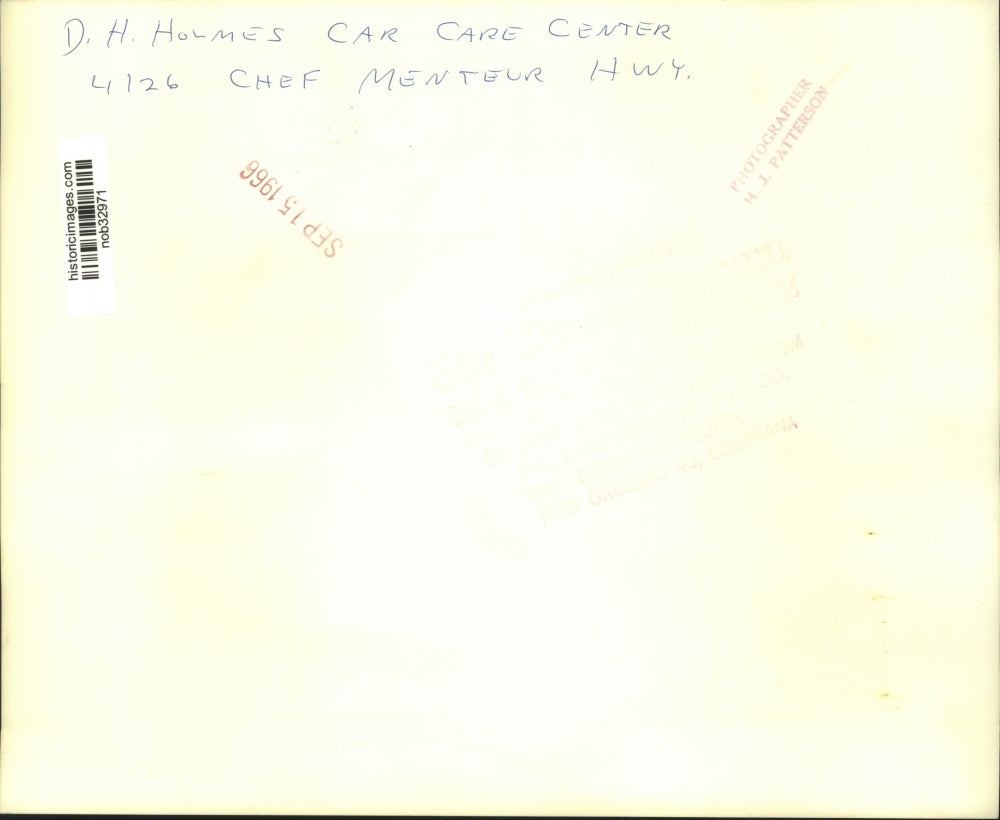 D. H. HOLMES CAR CARE CENTER
4126 CHEF MENTEUR HWY.
PHOTOGRAPHER
H. J. PATTERSON
historicimages.com
nob32971
SEP 15 1966
CO.
SQUARE
NEW ORLEANS 40, LOUISIANA